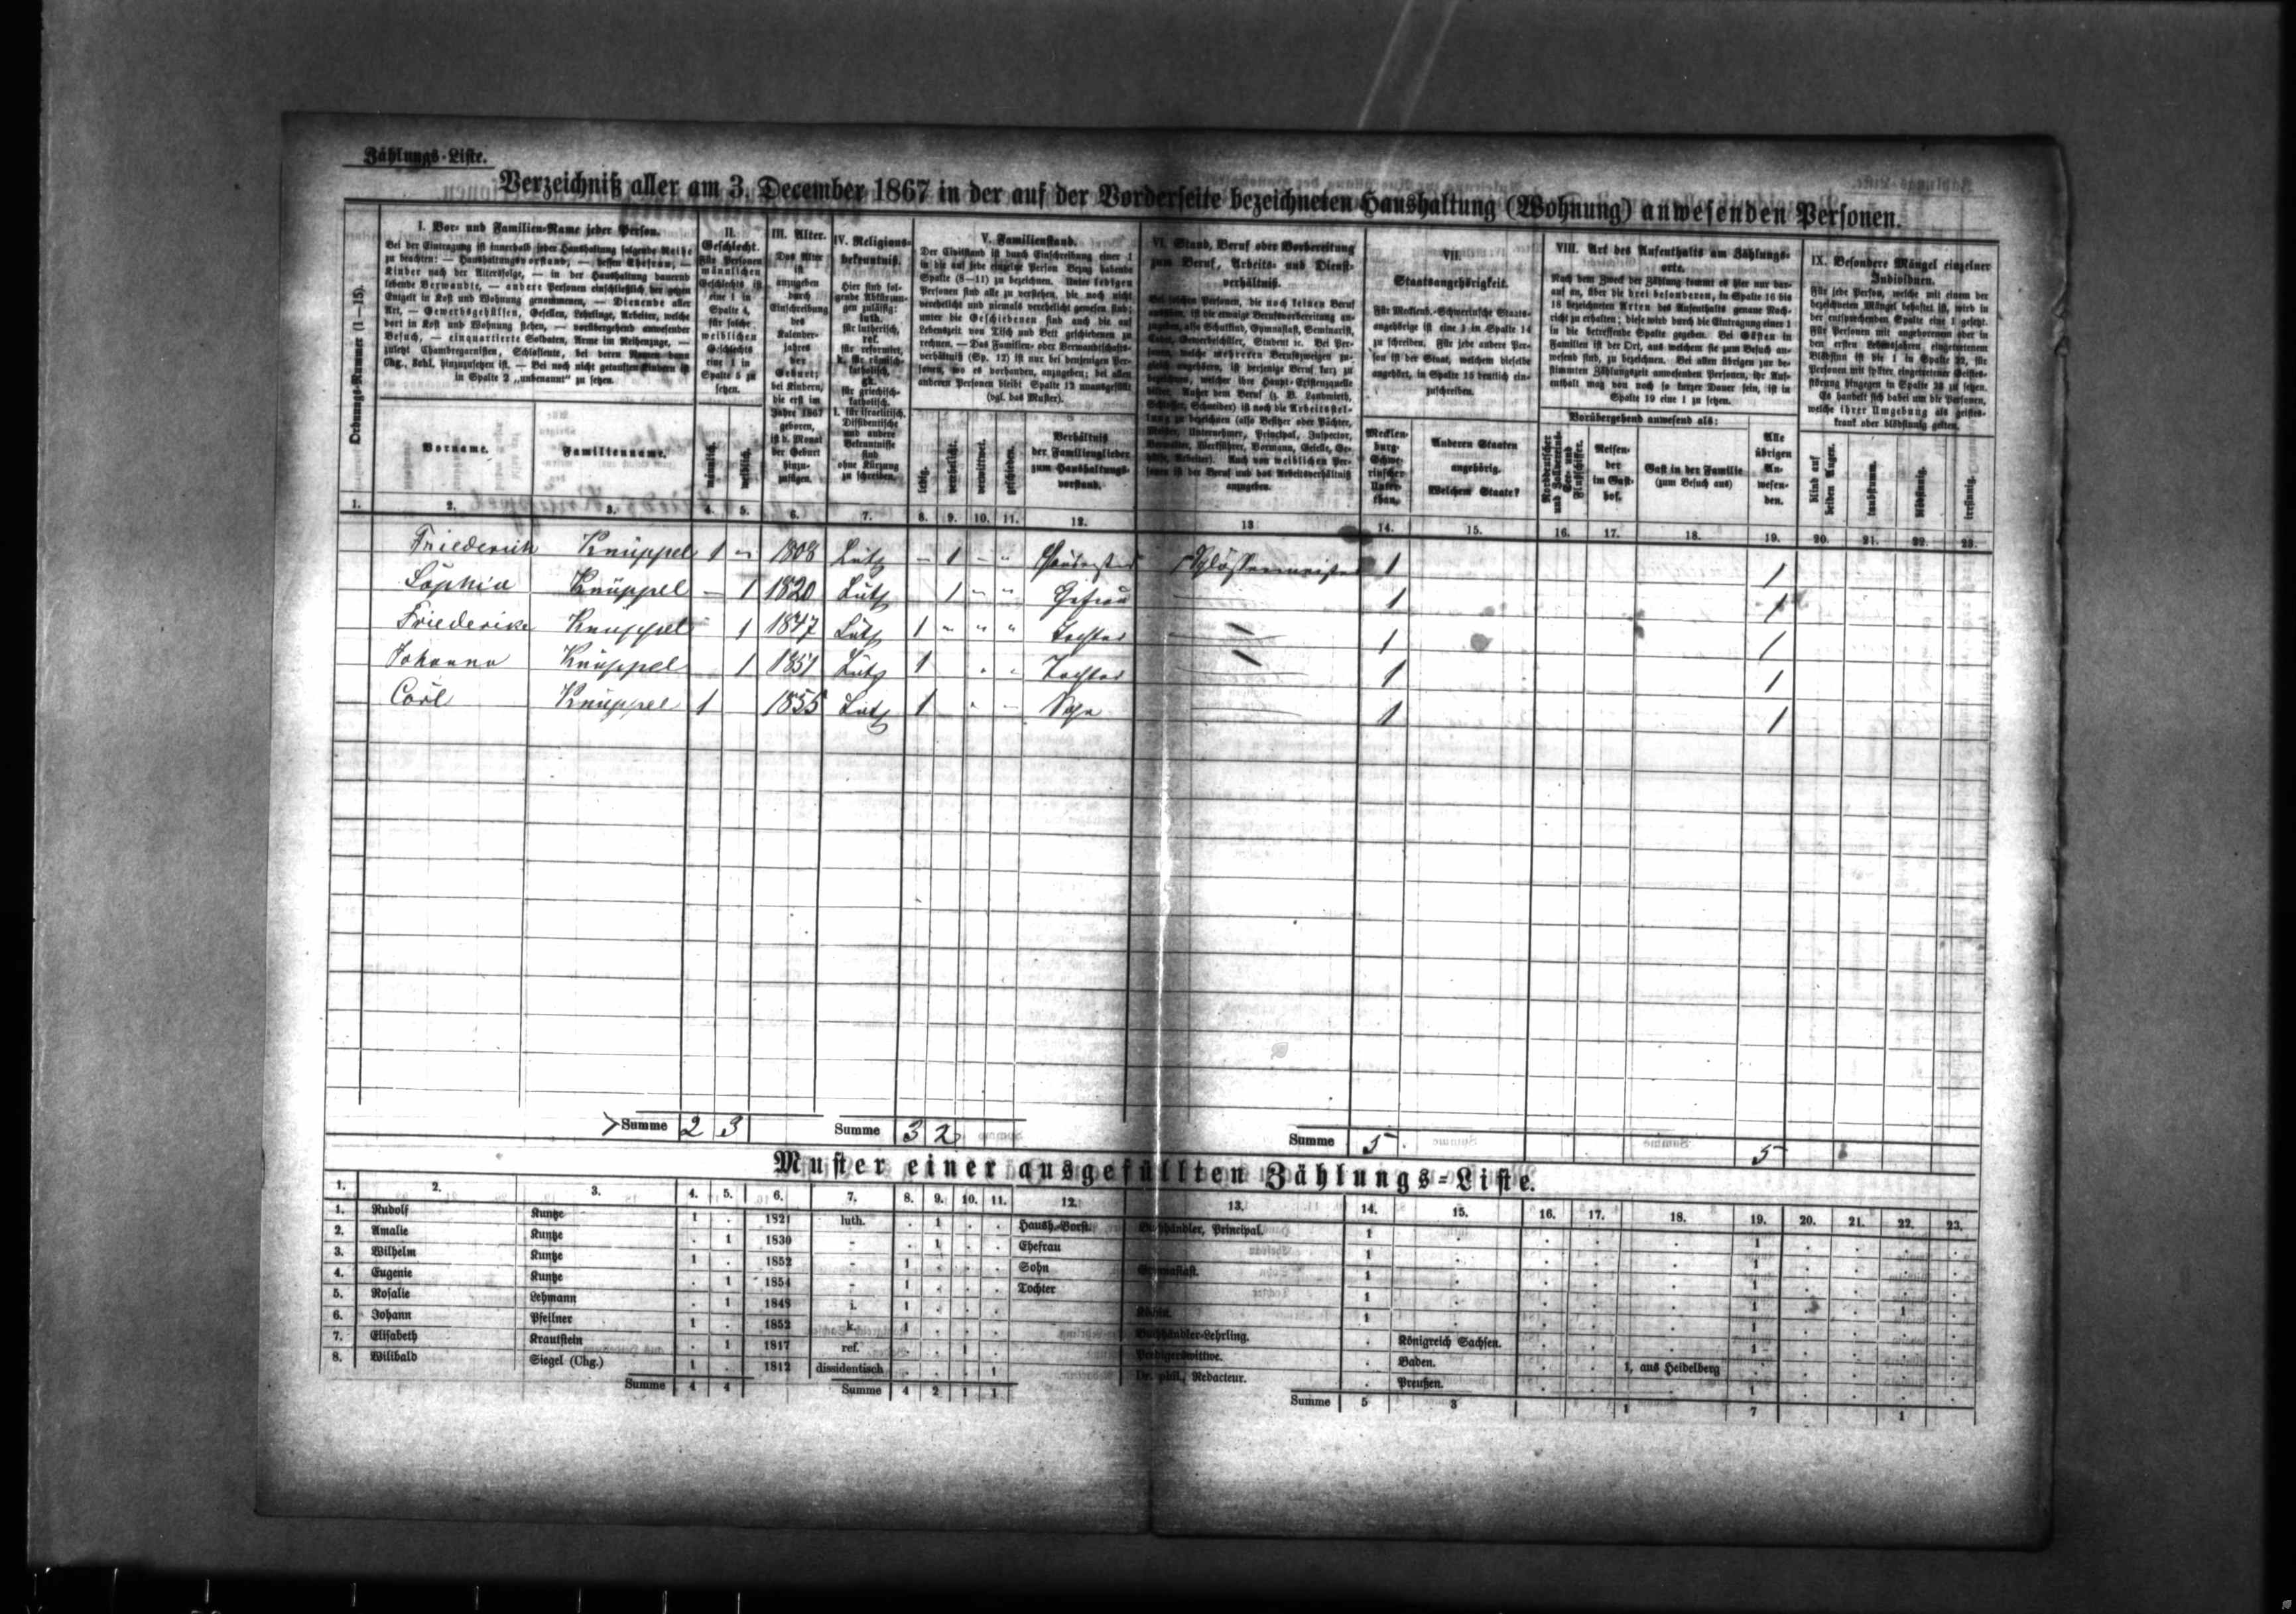 Zählungs-Liste.
Verzeichniß aller am 3. December 1867 in der auf der Vorderseite bezeichneten Haushaltung (Wohnung) anwesenden Personen.
Ordnungs-Nummer (1—15).
I. Vor- und Familien-Name jeder Person.
Bei der Eintragung ist innerhalb jeder Haushaltung folgende Reihe
zu beachten: — Haushaltungsvorstand, — dessen Ehefrau, —
Kinder nach der Altersfolge, — in der Haushaltung dauernd
lebende Verwandte, — andere Personen einschließlich der gegen
Entgelt in Kost und Wohnung genommenen, — Dienende aller
Art, — Gewerbsgehülfen, Gesellen, Lehrlinge, Arbeiter, welche
dort in Kost und Wohnung stehen, — vorübergehend anwesender
Besuch, — einquartierte Soldaten, Arme im Reihenzuge, —
zuletzt Chambregarnisten, Schlafleute, bei deren Namen dann
Chg., Schl. hinzuzusetzen ist. — Bei noch nicht getauften Kindern ist
in Spalte 2 „unbenannt" zu setzen.
Vorname.
Familienname.
II.
Geschlecht.
Für Personen
männlichen
Geschlechts ist
eine 1 in
Spalte 4,
für solche
weiblichen
Geschlechts
eine 1 in
Spalte 5 zu
setzen.
männlich.
weiblich.
III. Alter.
Das Alter
ist
anzugeben
durch
Einschreibung
des
Kalender-
jahres
der
Geburt;
bei Kindern,
die erst im
Jahre 1867
geboren,
ist d. Monat
der Geburt
hinzu-
zufügen.
IV. Religions-
bekenntniß.
Hier sind fol-
gende Abkürzun-
gen zulässig:
luth.
für lutherisch,
ref.
für reformirt,
k. für römisch-
katholisch,
gk.
für griechisch-
katholisch,
i. für israelitisch.
Dissidentische
und andere
Bekenntnisse
sind
ohne Kürzung
zu schreiben.
V. Familienstand.
Der Civilstand ist durch Einschreibung einer 1
in die auf jede einzelne Person Bezug habende
Spalte (8—11) zu bezeichnen. Unter ledigen
Personen sind alle zu verstehen, die noch nicht
verehelicht und niemals verehelicht gewesen sind;
unter die Geschiedenen sind auch die auf
Lebenszeit von Tisch und Bett geschiedenen zu
rechnen. — Das Familien- oder Verwandtschafts-
verhältniß (Sp. 12) ist nur bei denjenigen Per-
sonen, wo es vorhanden, anzugeben; bei allen
anderen Personen bleibt Spalte 12 unausgefüllt
(vgl. das Muster).
ledig.
verehelicht.
verwittwet.
geschieden.
Verhältniß
der Familienglieder
zum Haushaltungs-
vorstand.
VI. Stand, Beruf oder Vorbereitung
zum Beruf, Arbeits- und Dienst-
verhältniß.
VII.
Staatsangehörigkeit.
Für Mecklenb.-Schwerinsche Staats-
angehörige ist eine 1 in Spalte 14
zu schreiben. Für jede andere Per-
son ist der Staat, welchem dieselbe
angehört, in Spalte 15 deutlich ein-
zuschreiben.
Mecklen-
burg-
Schwe-
rinscher
Unter-
than.
Anderen Staaten
angehörig.
Welchem Staate?
VIII. Art des Aufenthalts am Zählungs-
orte.
Nach dem Zweck der Zählung kommt es hier nur dar-
auf an, über die drei besonderen, in Spalte 16 bis
18 bezeichneten Arten des Aufenthalts genaue Nach-
richt zu erhalten; diese wird durch die Eintragung einer 1
in die betreffende Spalte gegeben. Bei Gästen in
Familien ist der Ort, aus welchem sie zum Besuch an-
wesend sind, zu bezeichnen. Bei allen übrigen zur be-
stimmten Zählungszeit anwesenden Personen, ihr Auf-
enthalt mag von noch so kurzer Dauer sein, ist in
Spalte 19 eine 1 zu setzen.
Vorübergehend anwesend als:
Reisen-
der
im Gast-
hof.
Gast in der Familie
(zum Besuch aus)
Alle
übrigen
An-
wesen-
den.
IX. Besondere Mängel einzelner
Individuen.
Für jede Person, welche mit einem der
bezeichneten Mängel behaftet ist, wird in
der entsprechenden Spalte eine 1 gesetzt.
Für Personen mit angeborenem oder in
den ersten Lebensjahren eingetretenem
Blödsinn ist die 1 in Spalte 22, für
Personen mit später eingetretener Geistes-
störung hingegen in Spalte 23 zu setzen.
Es handelt sich dabei um die Personen,
welche ihrer Umgebung als geistes-
krank oder blödsinnig gelten.
blind auf
beiden Augen.
taubstumm.
blödsinnig.
irrsinnig.
1. 2. 3. 4. 5. 6. 7. 8. 9. 10. 11. 12. 13 14. 15. 16. 17. 18. 19. 20. 21. 22. 23.
Friederich Knüppel 1 " 1808 Luth — 1 - " 1 1
Sophia Knüppel — 1 1820 Luth 1 " " Ehefrau 1 1
Friederike Knüppel 1 1847 Luth 1 " " " Tochter 1 1
Johanna Knüppel 1 1851 Luth 1 Tochter 1 1
Carl Knüppel 1 1855 Luth 1 Sohn 1 1
Summe 2 3 Summe 3 2 Summe 5 Summe Summe 5
Muster einer ausgefüllten Zählungs-Liste.
1. 2. 3. 4. 5. 6. 7. 8. 9. 10. 11. 12. 13. 14. 15. 16. 17. 18. 19. 20. 21. 22. 23.
1. Rudolf Kuntze 1 . 1821 luth. . 1 . . Haush.-Vorst. Buchhändler, Principal. 1 . . . . 1 . . . .
2. Amalie Kuntze . 1 1830 „ . 1 . . Ehefrau 1 . . . . 1 . . . .
3. Wilhelm Kuntze 1 . 1852 „ 1 . . . Sohn Gymnasiast. 1 . . . . 1 . . . .
4. Eugenie Kuntze . 1 1854 „ 1 . . . Tochter 1 . . . . 1 . . 1 .
5. Rosalie Lehmann . 1 1848 i. 1 . . . Köchin. 1 . . . . 1 . . . .
6. Johann Pfeilner 1 . 1852 k. 1 . . . Buchhändler-Lehrling. . Königreich Sachsen. . . . 1 . . . .
7. Elisabeth Krautstein . 1 1817 ref. . . 1 . Predigerswittwe. . Baden. . . 1, aus Heidelberg . . . . .
8. Wilibald Siegel (Chg.) 1 . 1812 dissidentisch . . . 1 Dr. phil., Redacteur. . Preußen. . . . 1 . . . .
Summe 4 4 Summe 4 2 1 1 Summe 5 3 1 7 1